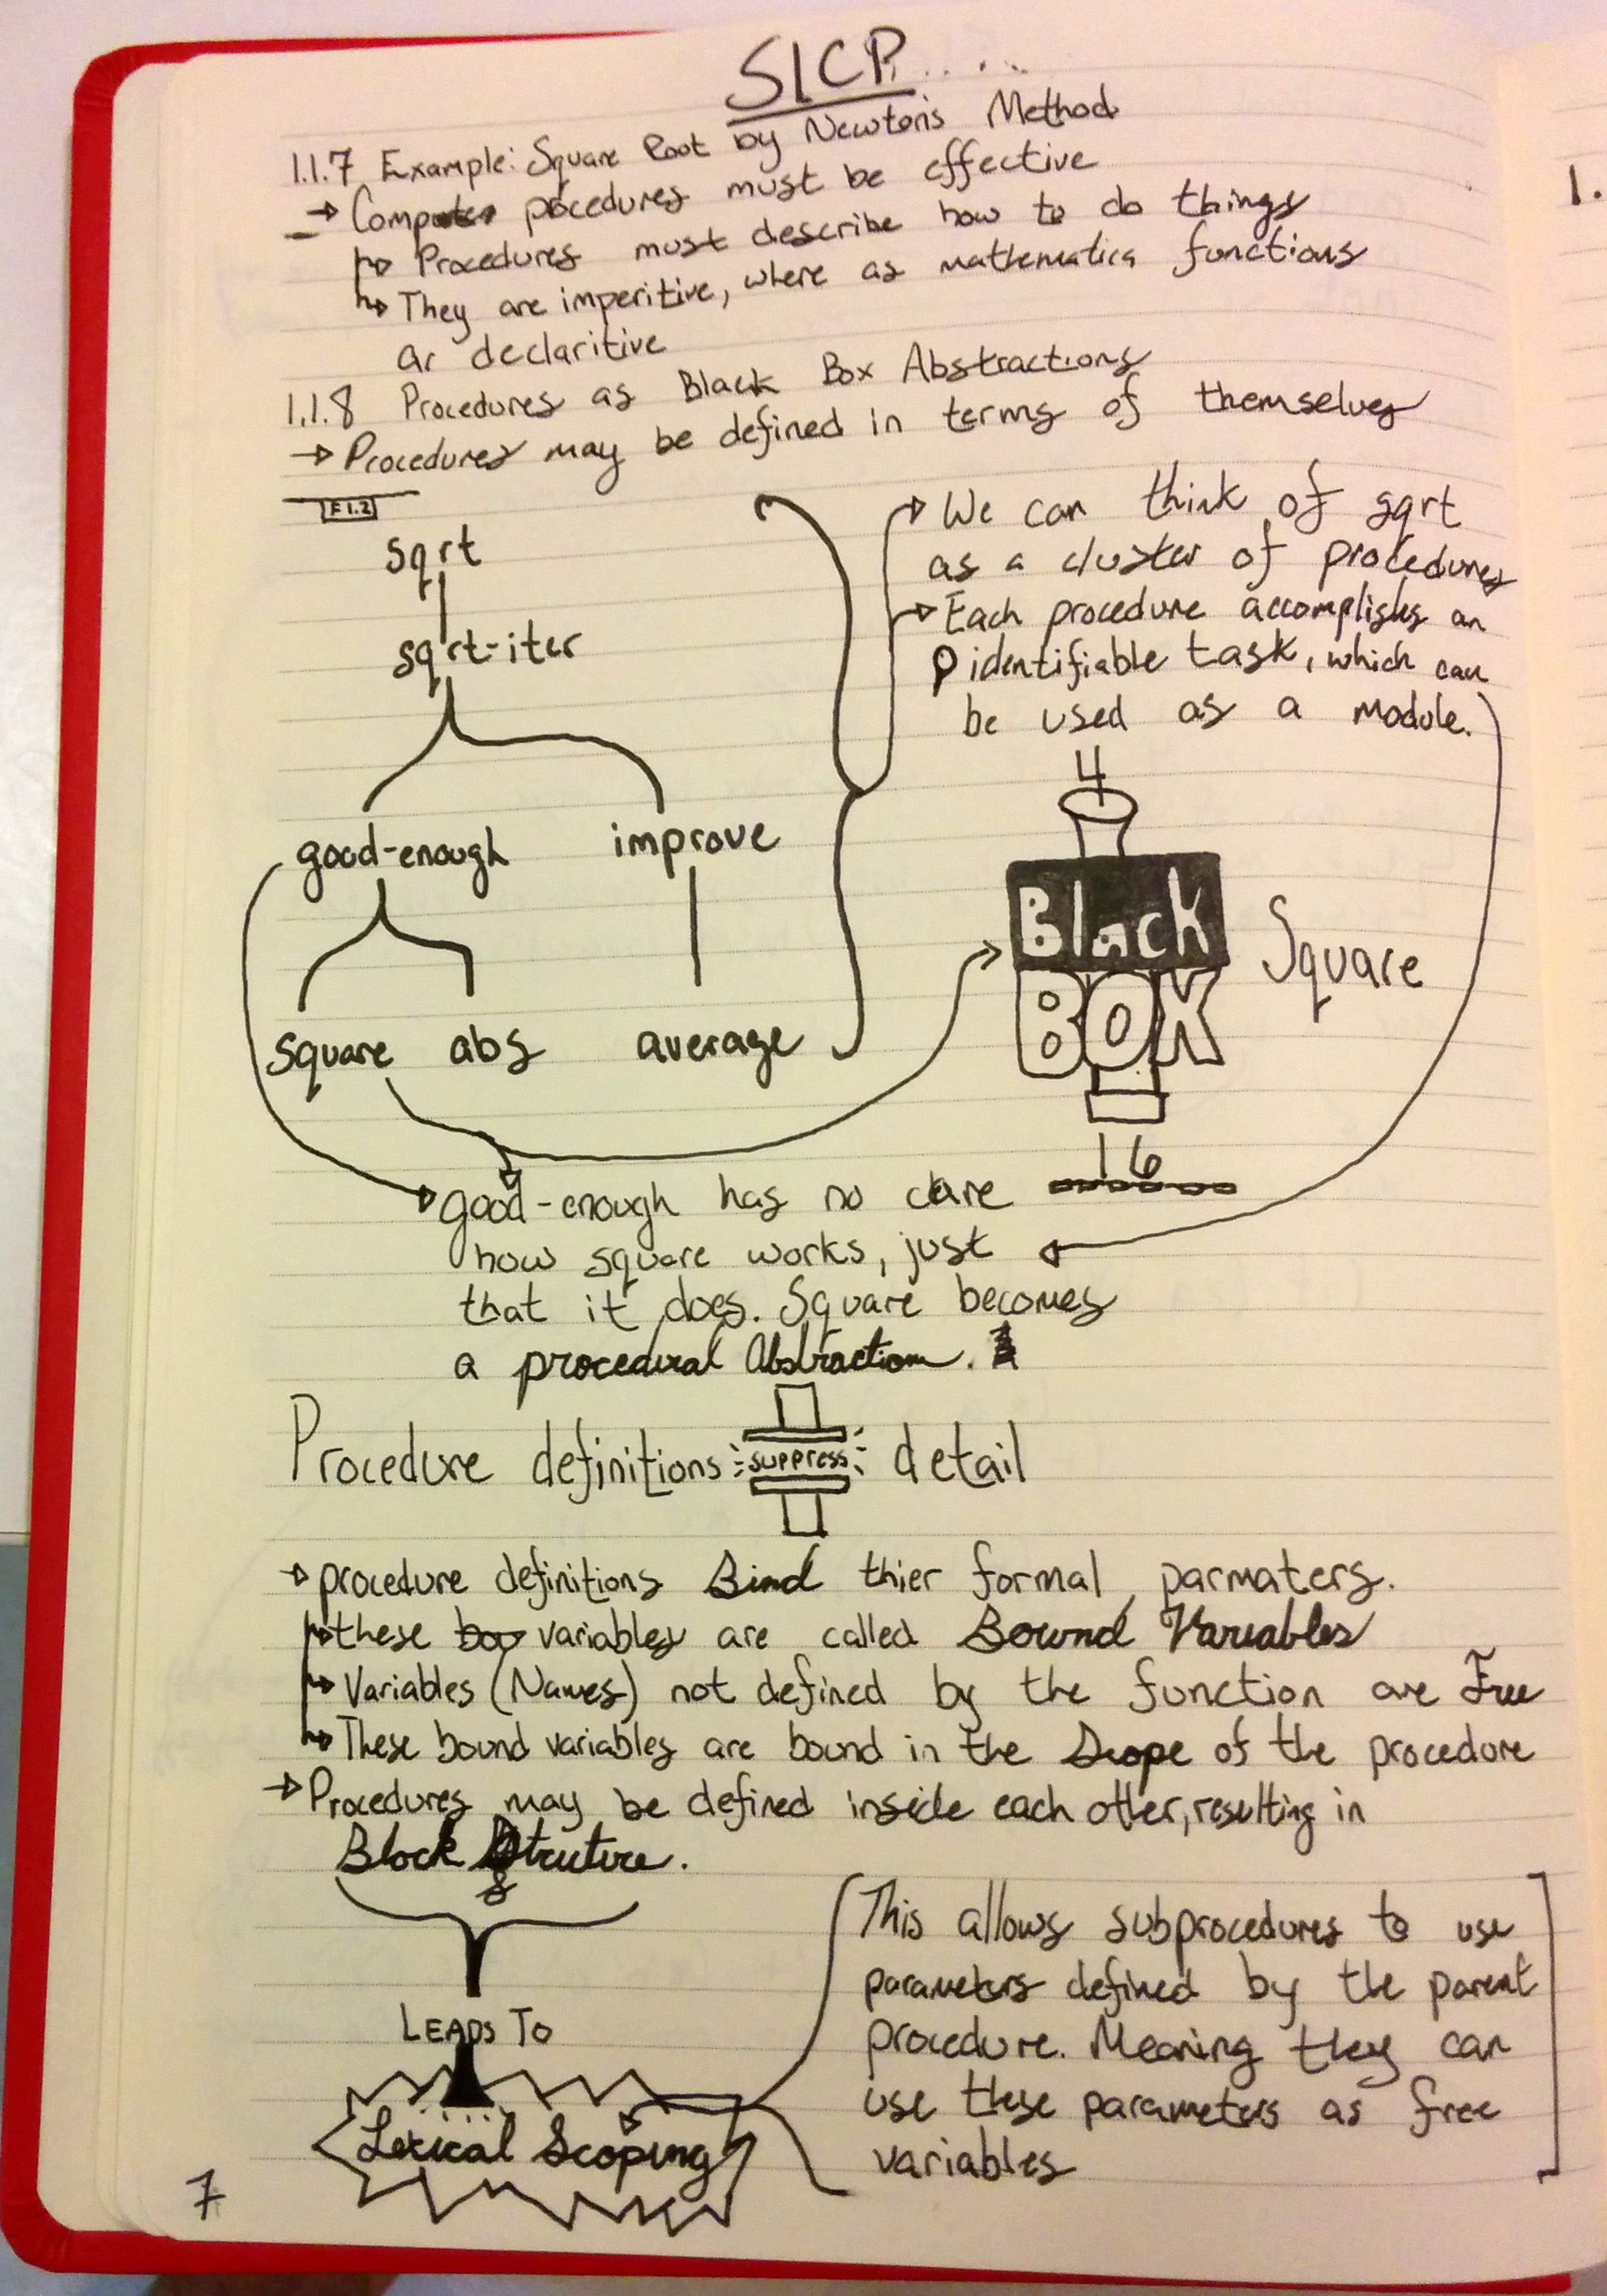 SICP.....
1.1.7 Example: Square Root by Newton's Method
→ Computer pocedures must be effective
↳ Procedures must describe how to do things
↳ They are imperitive, where as mathematics functions
ar declaritive
1.1.8 Procedures as Black Box Abstractions
→ Procedures may be defined in terms of themselves
F1.2
sqrt
sqrt-iter
good-enough improve
square abs average
→ We can think of sqrt
as a cluster of procedures
→ Each procedure accomplishs an
identifiable task, which can
be used as a module.
4
Black
BOX
Square
16
→ good-enough has no care
how square works, just
that it does. Square becomes
a procedural Abstraction.
Procedure definitions suppress detail
→ procedure definitions Bind thier formal parmaters.
↳ these variables are called Bound Variables
↳ Variables (Names) not defined by the function are Free
↳ These bound variables are bound in the Scope of the procedure
→ Procedures may be defined inside each other, resulting in
Block Structure.
LEADS TO
Lexical Scoping
This allows subprocedures to use
parameters defined by the parent
procedure. Meaning they can
use these parameters as free
variables
7
1.